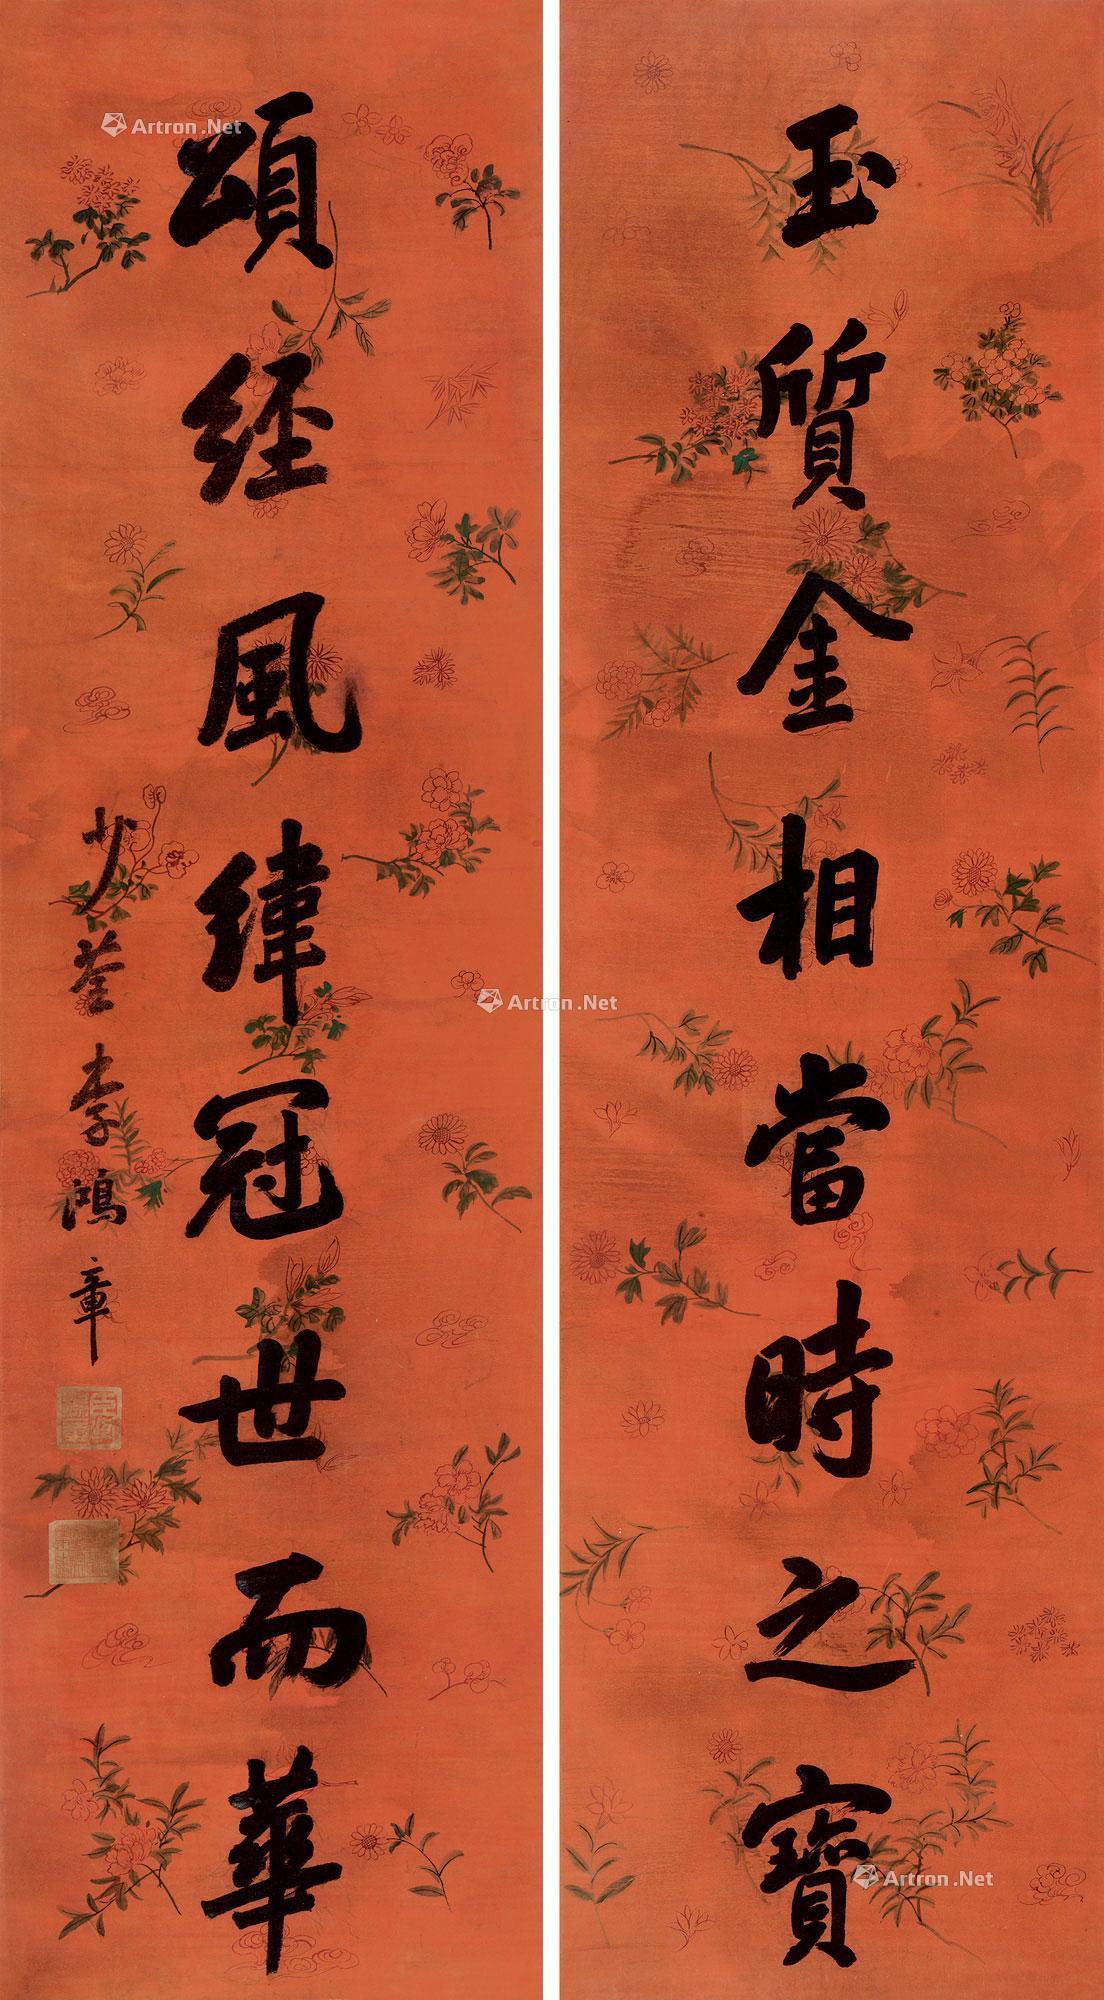 玉質金相當時之寶
頌經風緯冠世而華
少荃李鴻章
Artron.Net
Artron.Net
Artron.Net